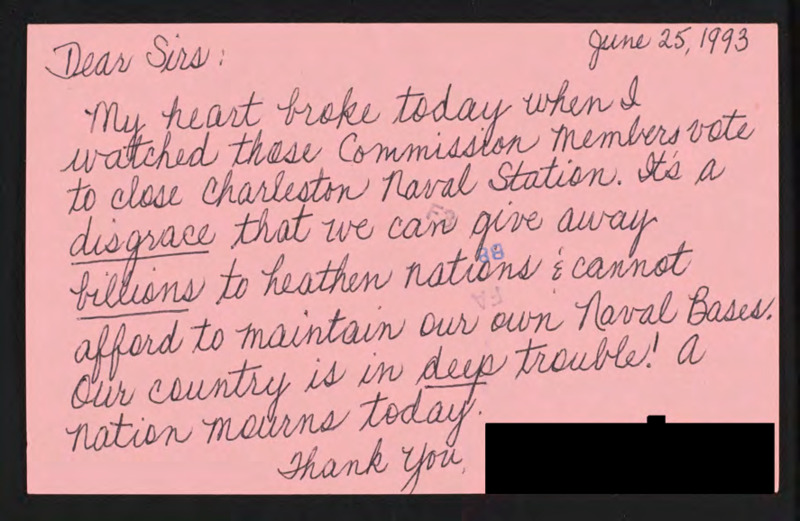 June 25, 1993
Dear Sirs:
My heart broke today when I
watched those Commission members vote
to close Charleston Naval Station. It's a
disgrace that we can give away
billions to heathen nations & cannot
afford to maintain our own Naval Bases.
Our country is in deep trouble! A
nation mourns today.
Thank You,